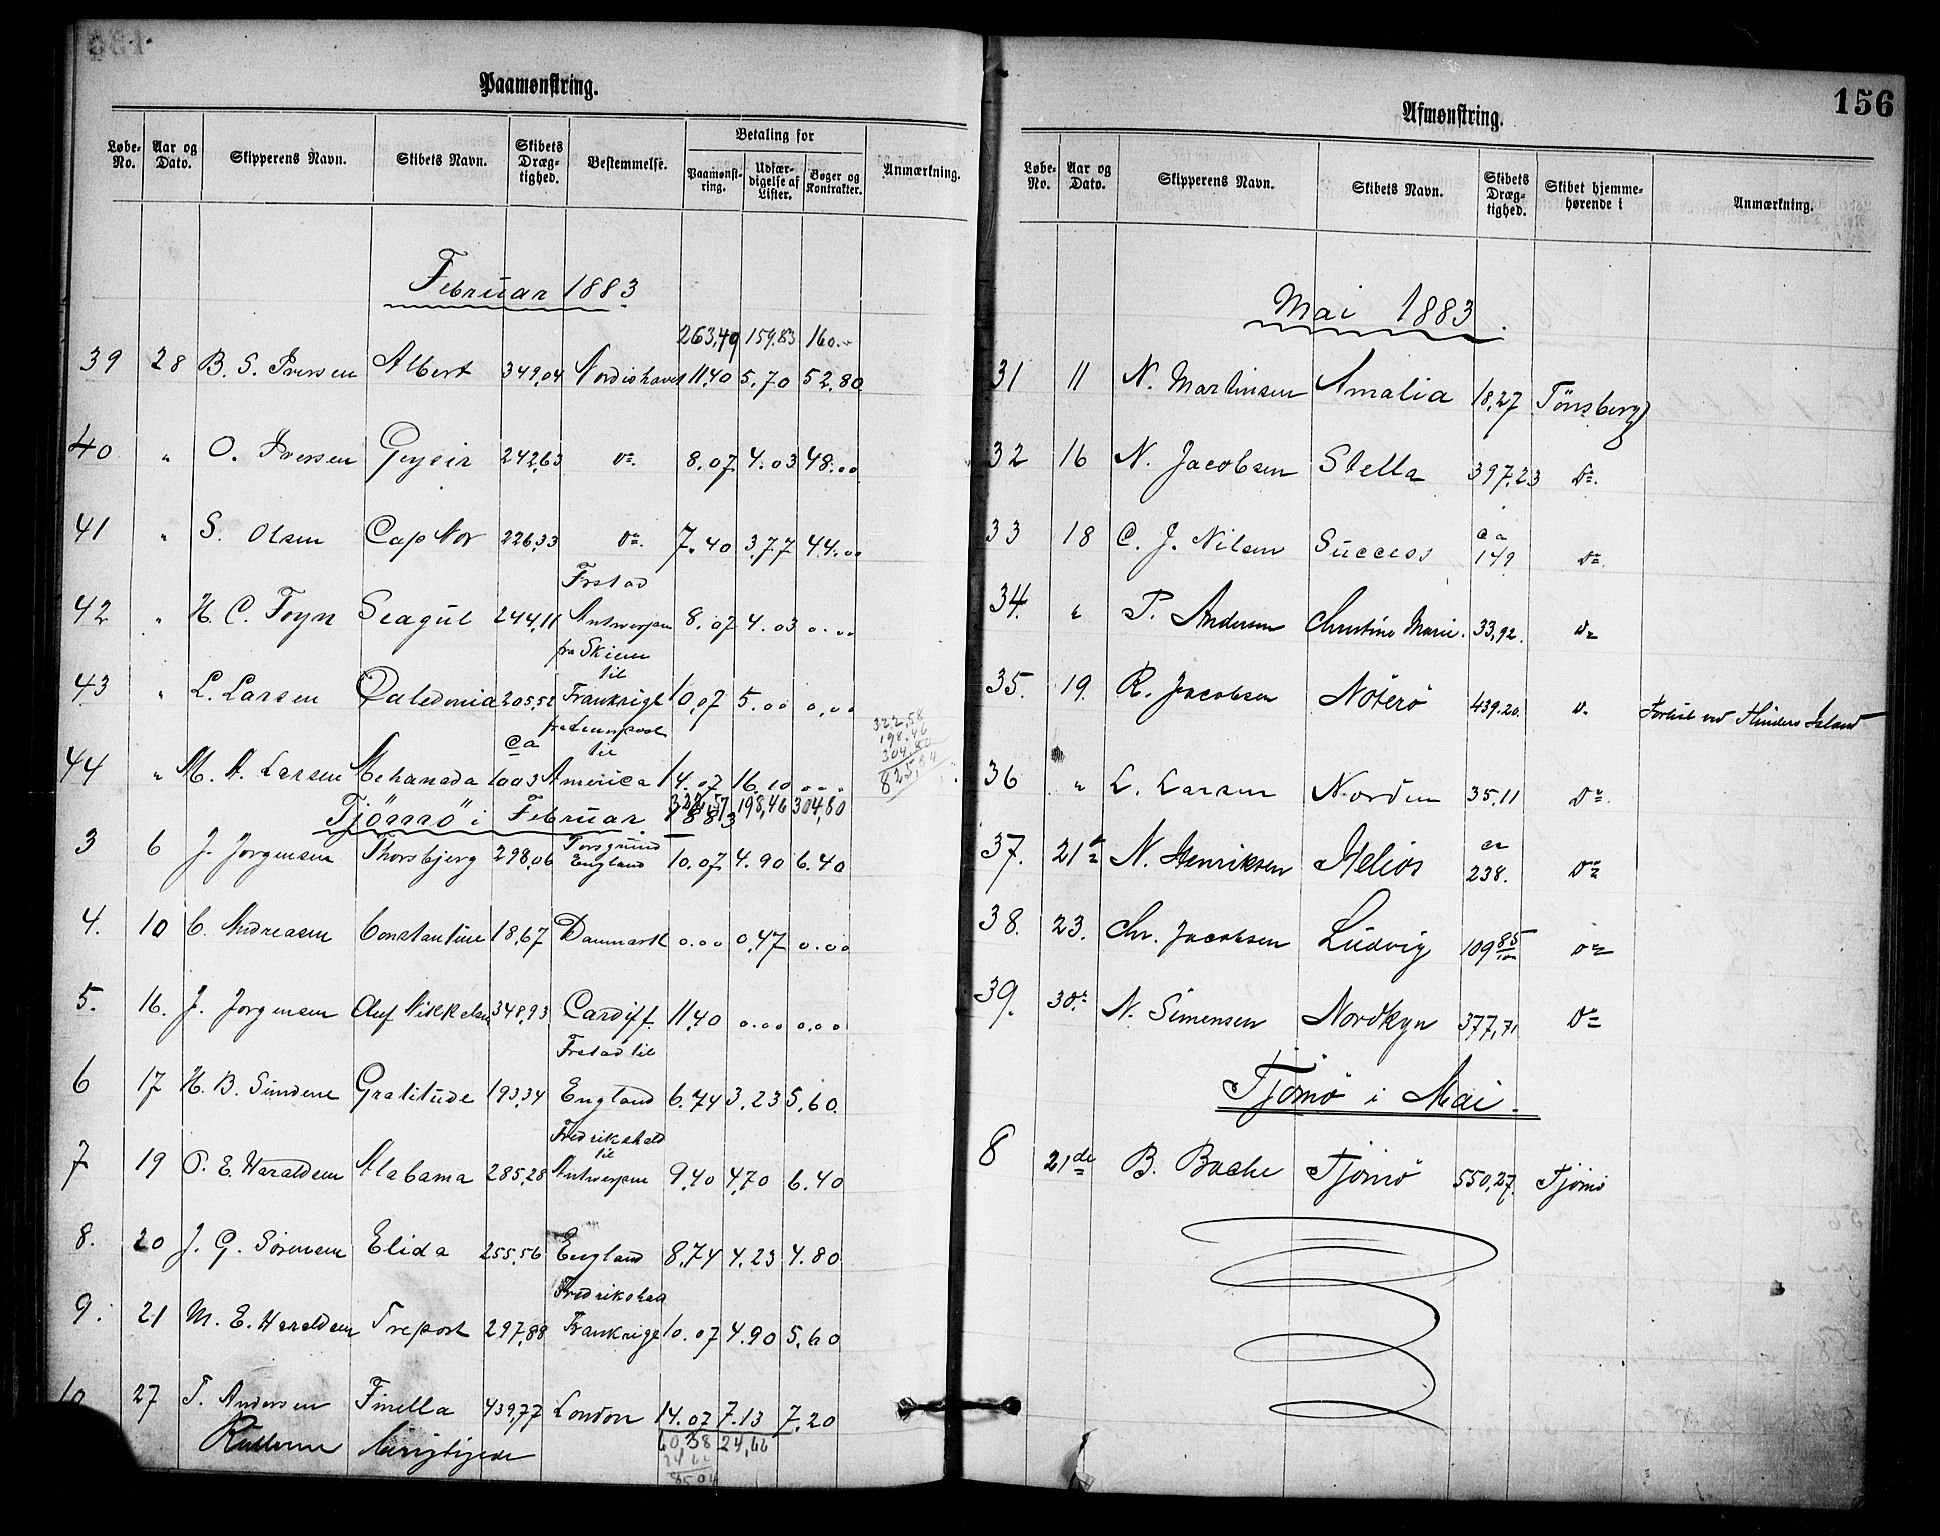 Paamønstring.
Løbe-No. Aar og Dato. Skipperens Navn. Skibets Navn. Skibets Dræg-tighed. Bestemmelse. Betaling for Paamønst-ring. Udfær-digelse af Lister. Bøger og Kontrakter. Anmærkning.
Februar 1883
263,49 159,83 160.--
39 28 B. S. Iversen Albert 349,04 Nordishavet 11,40 5,70 52,80
40 " O. Iversen Geysir 242,63 Do. 8.07 4.03 48.00
41 " S. Olsen Cap Nor 226,33 Do. 7.40 3,77 44.00
Frstad
42 " H. C. Foyn Seagul 244,11 Antwerpen 8.07 4.03 0.00
fra Skien
til
43 " L. Larsen Caledonia 205,52 Frankrige 10,07 5.00 0,00
322,58
198.46
304,80
825,84
ca til
44 " M. A. Larsen Mehanada 1003 America 14.07 16.10 0.00
322,57 198,46 304,80
Tjömö i Februar 1883
Porsgrund
3 6 J. Jorgensen Thorsbjerg 298,06 England 10.07 4.90 6.40
4. 10 C. Andreasen Constantine 18,67 Danmark 0.00 0,47 0.00
5. 16. J. Jorgensen Oluf Nikkelsen 348,93 Cardiff 11,40 0.00 0.00
Frstad til
6 17 H. B. Sundene Gratitude 193,34 England 6.74 3.23 5,60
Fredrikshald
til
7 19 O. E. Haraldsen Alabama 285,28 Antwerpen 9,40 4,70 6.40
8. 20 J. G. Sørensen Elida 255,56 England 8,74 4.23 4.80
Fredrikshald
9. 21 M. E. Haraldsen Treport 297,88 Frankrige 10.07 4.90 5,60
10 27 T. Andersen Finella 439,77 London 14.07 7.13 7,20
60,38 24,66
8504
156
Afmønstring.
Løbe-No. Aar og Dato. Skipperens Navn. Skibets Navn. Skibets Dræg-tighed. Skibet hjemme-hørende i Anmærkning.
Mai 1883.
31 11 N. Martinsen Amalia 18,27 Tönsberg
32 16 N. Jacobsen Stella 397,23 Do.
33 18 C. J. Nilsen Success ca 149 Do.
34. " P. Andersen Christine Marie. 33,92. Do
35. 19. R. Jacobsen Nöterö 439.20. D. Forlist ved Flinders Island
36 " L. Larsen Norden 35,11 Do
37. 21de N. Henriksen Helios ca 238. Do
38. 23. Chr. Jacobsen Ludvig 109 85/100 Do
39. 30te N. Simensen Nordkyn 377,71 Do
Tjömö i Mai.
8 21de B. Bache Tjömö 550,27. Tjömö